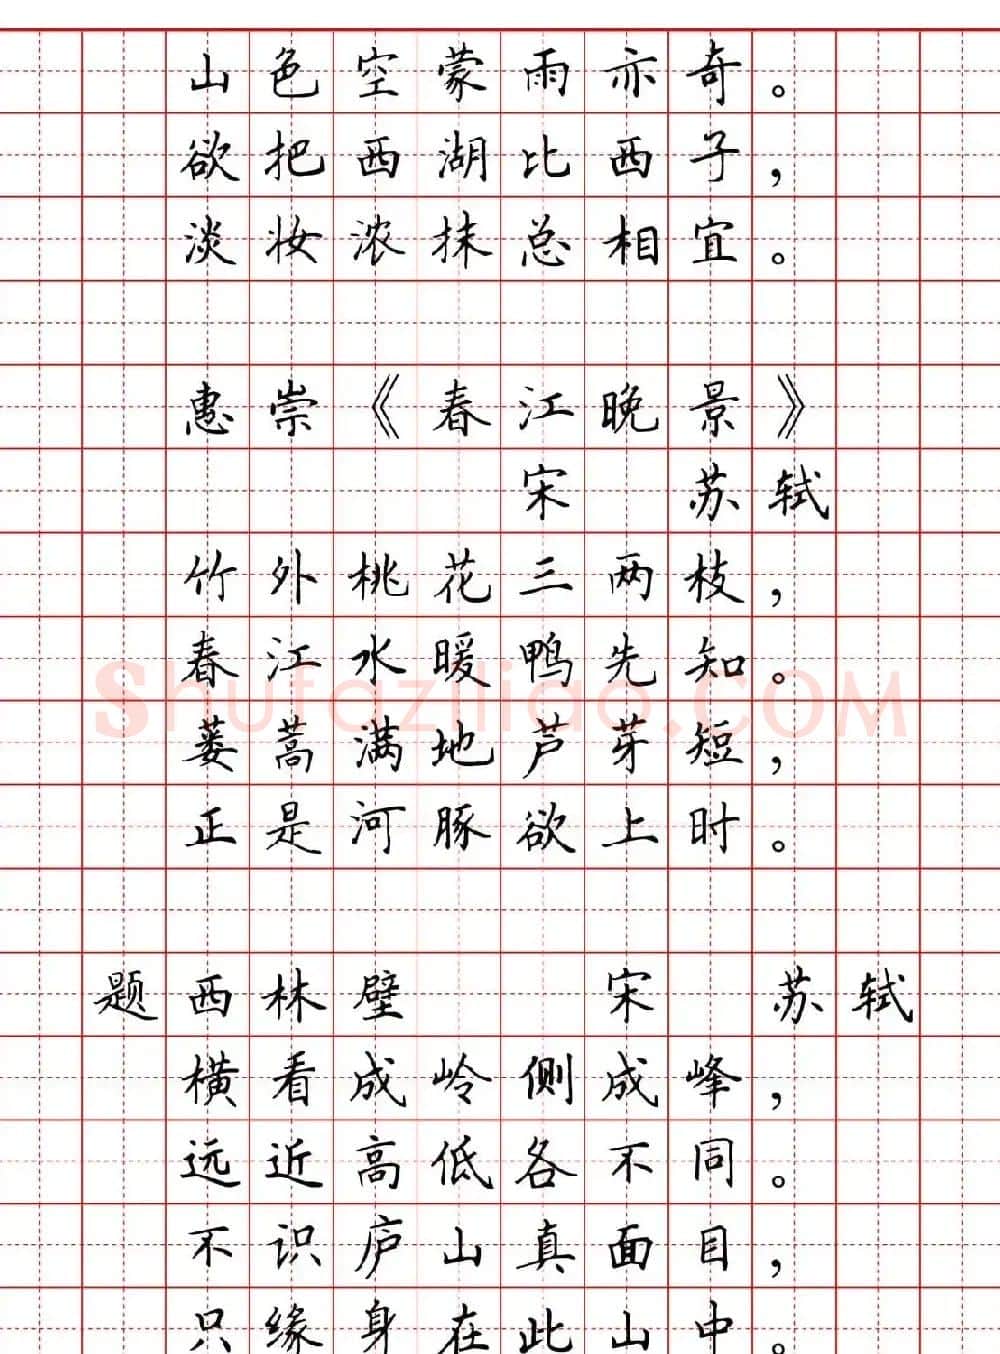 山色空蒙雨亦奇。
欲把西湖比西子，
淡妆浓抹总相宜。
惠崇《春江晚景》
宋 苏轼
竹外桃花三两枝，
春江水暖鸭先知。
shufaziliao.COM
蒌蒿满地芦芽短，
正是河豚欲上时。
题西林壁 宋 苏轼
横看成岭侧成峰，
远近高低各不同。
不识庐山真面目，
只缘身在此山中。